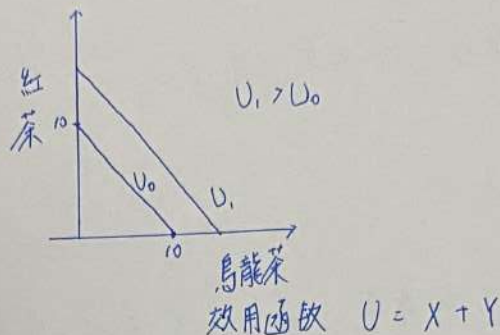 紅茶
10
U₁ > U₀
U₀
U₁
10
烏龍茶
效用函數 U = X + Y